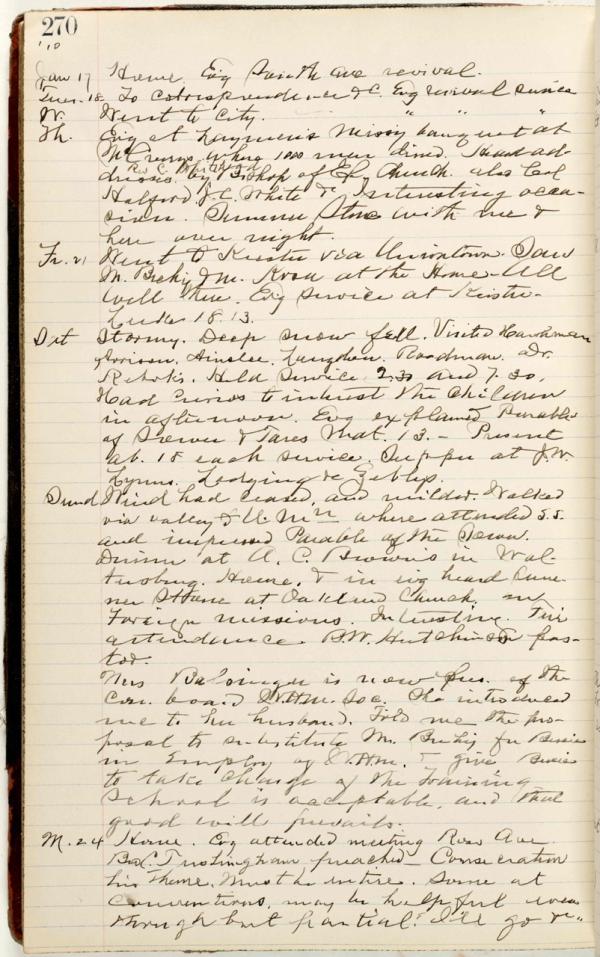 270
'10
Jan 17 Home. Evg Smith Ave revival.
Tues. 18. To correspondence &c. Evg revival service
W. Went to City. " " "
Th. Evg at Laymen's Missy banquet at
McCreerys where 1000 men dined. Heard ad-
dresses by Bishop of Epl Church. also Col
Halford J. C. White &c. Interesting occa-
sion. Sumner Stone with me &
here over night.
Fr. 21 Went to via Uniontown. Saw
M. Becky & M. Rosa at the Home - All
well there. Evg service at
Luke 18.13.
Sat Stormy. Deep snow fell. Visited
Ainslee. Vaughen. Woodman. Dr.
Held service 2.30 and 7.30.
Had to interest the children
in afternoon. Evg explained Parable
of Sower & Tares Mat. 13. - Present
ab. 18 each service. Supper at J. W.
Lynns. Lodging &c
Sund Wind had ceased, and milder. Walked
via valley to where attended S.S.
and Parable of the Sower.
Dinner at A. C. Brown's in Wal-
tersburg. Home, & in evg heard Sum-
ner Stone at Oakland Church, on
Foreign missions. Interesting. Fair
attendance. B. W. Hutchinson pas-
tor.
Mrs is now Pres. of the
Con. board W.H.M. Soc. She introduced
me to her husband. Told me the pro-
posal to substitute M. Becky for Bessie
in Employ of W.H.M. & give Bessie
to take charge of the Training
School is acceptable, and that
good will prevails.
M. 24 Home. Evg attended meeting Ross Ave
Bro C. Trustingham preached - Consecration
his theme. Must be entire. Some at
Conventions, may be helpful even
though but partial. I'll go